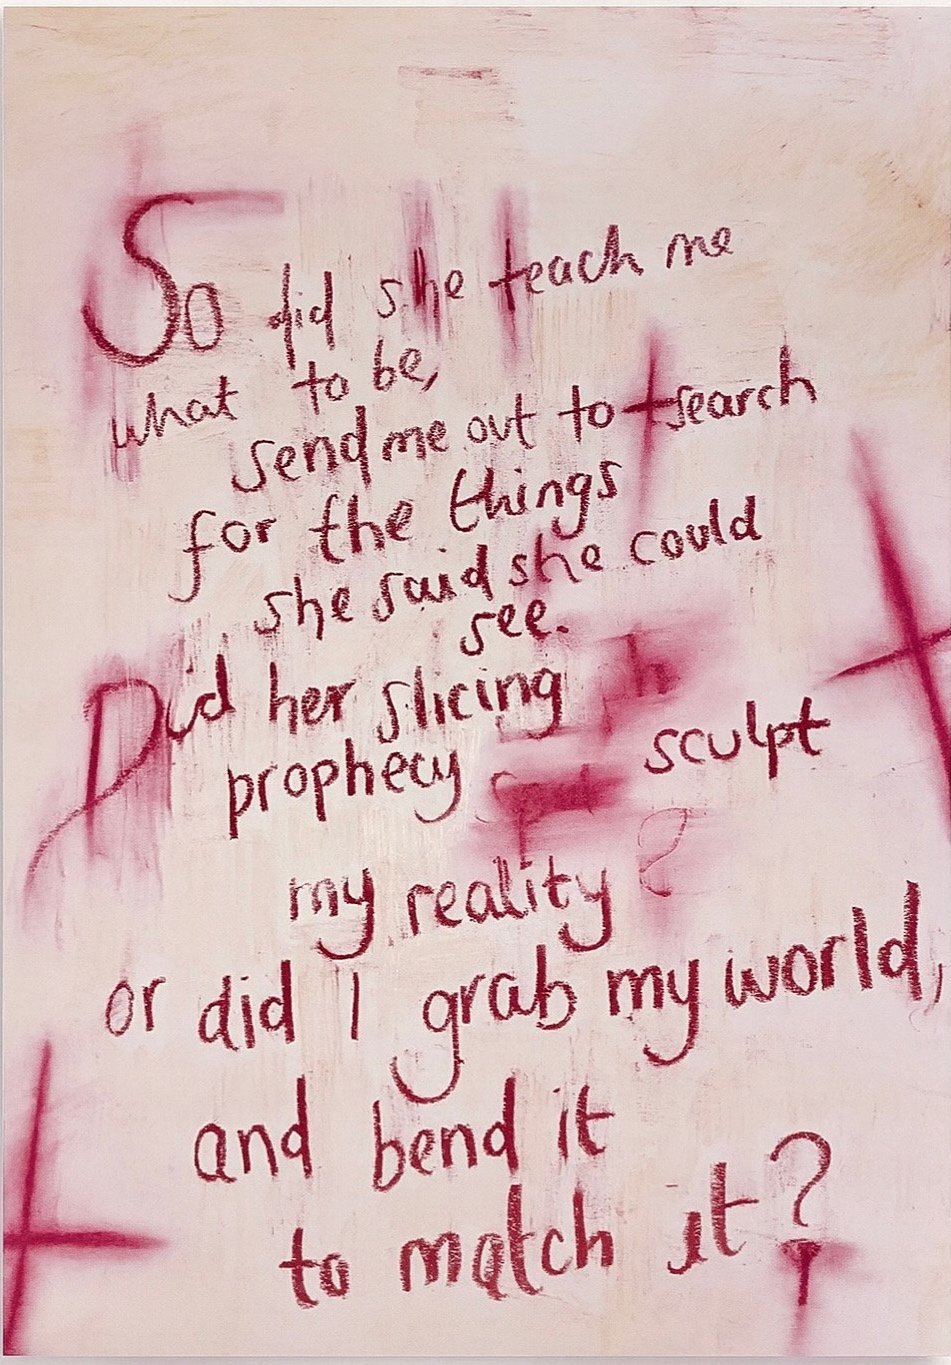 So did she teach me
what to be,
send me out to search
for the things
she said she could
see.
Did her slicing
prophecy sculpt
my reality?
or did I grab my world,
and bend it
to match it?